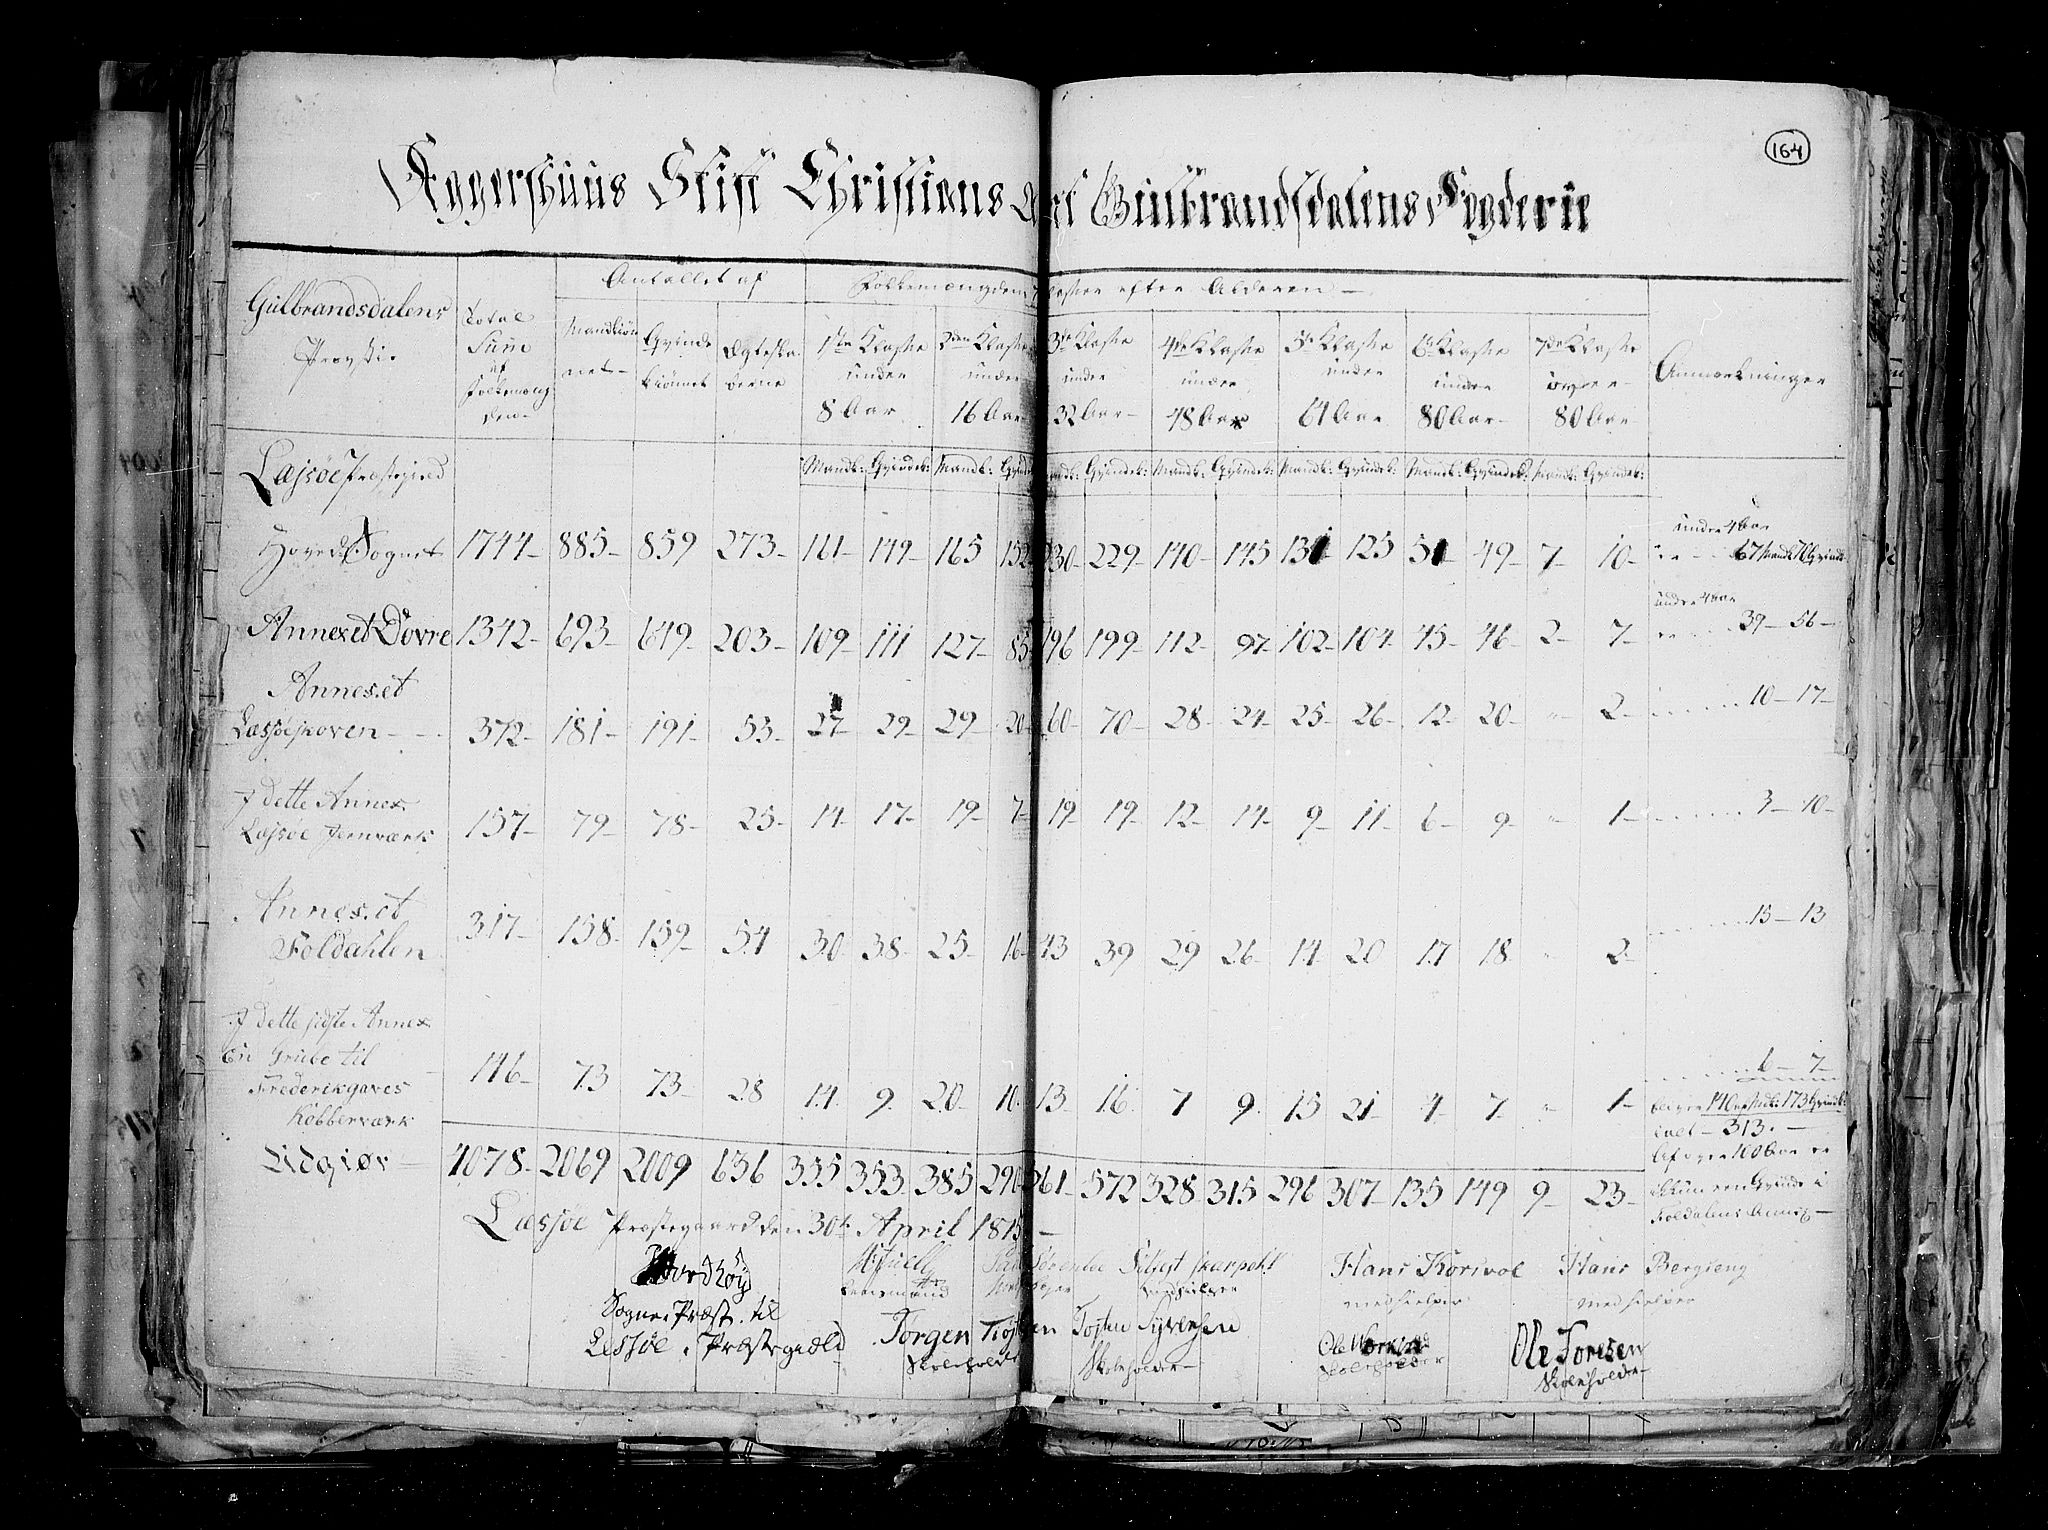 164
Aggershuus Stift Christians Amt Gulbrandsdalens Fogderie
Gulbrandsdalens Provsti
Total Sum af Folkemængden
Antallet af
Mandkiønnet
Qvindekiønnet
Ægteskaberne
Folkemængdens Klasser efter Alderen
1ste Klasse under 8 Aar
2den Klasse under 16 Aar
3de Klasse under 32 Aar
4de Klasse under 48 Aar
5te Klasse under 64 Aar
6te Klasse under 80 Aar
7de Klasse over 80 Aar
Anmærkninger
Læssøe Præstegield
Mandk: Qvindek: Mandk: Qvindek: Mandk: Qvindek: Mandk: Qvindek: Mandk: Qvindek: Mandk: Qvindek: Mandk: Qvindek:
Hoved Sognet 1744 885 859 273 161 149 165 152 230 229 140 145 131 125 51 49 7 10 under 4 Aar er 67 Mandk 70 Qvindk
Annexet Dovre 1342 693 649 203 109 111 127 85 196 199 112 97 102 104 45 46 2 7 under 4 Aar er 39 - 56
Annexet
Læssøeskoven 372 181 191 53 27 29 29 20 60 70 28 24 25 26 12 20 " 2 10 - 17
J dette Annex
Læssøe Jernværk 157 79 78 25 14 17 19 7 19 19 12 14 9 11 6 9 " 1 3 - 10
Annexet
Foldahlen 317 158 159 54 30 38 25 16 43 39 29 26 14 20 17 18 " 2 15 - 13
J dette sidste Annex
En Grube til
Frederikgaves
Kobberværk 146 73 73 28 14 9 20 10 13 16 7 9 15 21 4 7 " 1 6 - 7
140 173
313
Af over 100 Aar er
ikkun een Qvinde i
Foldalens Annex
Udgiør 4078 2069 2009 636 355 353 385 290 561 572 328 315 296 307 135 149 9 23
Læssøe Præstegaard den 30te April 1815
Sogne Præst til
Lessøe Præstegield
Hans Korsvol
medhielper
Hans Bergseng
medhielper
Jørgen
Skoleholder
Tosten Syversen
Skoleholder
Ole
Skoleholder
Ole Toresen
Skoleholder